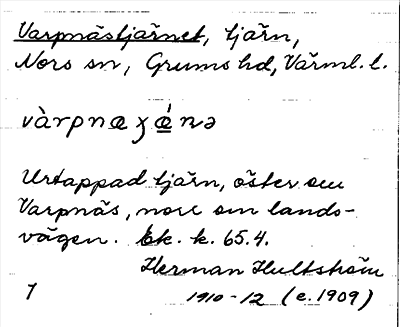 Varpnästjärnet, tjärn,
Nors sn, Grums hd, Värml. l.
vàrpnæʒǽnə
Urtappad tjärn, öster om
Varpnäs, norr om lands-
vägen. Ek. k. 65.4.
Herman Hultström
1 1910-12 (e. 1909)